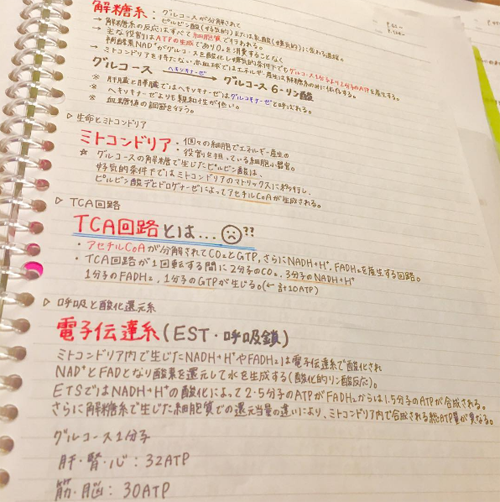 解糖系：グルコースが分解されて
ピルビン酸(好気的)または乳酸(嫌気的)に至る過程。
→ 解糖系の反応はすべて細胞質で行われる。
→ 主な役割はATPの生成でありO₂を消費することなく
補酵素NAD⁺がグルコースを酸化し嫌気的条件下でもグルコース1分子より2分子のATPを産生する。
→ ミトコンドリアを持たない赤血球ではエネルギー産生は解糖系のみに依存する。
グルコース ヘキソキナーゼ→ グルコース6-リン酸
※ 肝臓と膵臓ではヘキソキナーゼはグルコキナーゼと呼ばれる。
※ ヘキソキナーゼよりも親和性が低い。
※ 血糖値の調節を行う。
▷ 生命とミトコンドリア
ミトコンドリア：個々の細胞でエネルギー産生の
役割を担っている細胞小器官。
☆ グルコースの解糖で生じたピルビン酸は、
好気的条件下ではミトコンドリアのマトリックスに移行し、
ピルビン酸デヒドロゲナーゼによってアセチルCoAが生成される。
▷ TCA回路
TCA回路とは…??
・アセチルCoAが分解されてCO₂とGTP、さらにNADH+H⁺、FADH₂を産生する回路。
・TCA回路が1回転する間に2分子のCO₂、3分子のNADH+H⁺
1分子のFADH₂、1分子のGTPが生じる。(←計10ATP)
▷ 呼吸と酸化還元系
電子伝達系(EST・呼吸鎖)
ミトコンドリア内で生じたNADH+H⁺やFADH₂は電子伝達系で酸化され
NAD⁺とFADとなり酸素を還元して水を生成する(酸化的リン酸反応)。
ETSではNADH+H⁺の酸化によって2.5分子のATPがFADH₂からは1.5分子のATPが合成される。
さらに解糖系で生じた細胞質での還元当量の違いにより、ミトコンドリア内で合成される総ATP量が異なる。
グルコース1分子
肝・腎・心：32ATP
筋・脳：30ATP